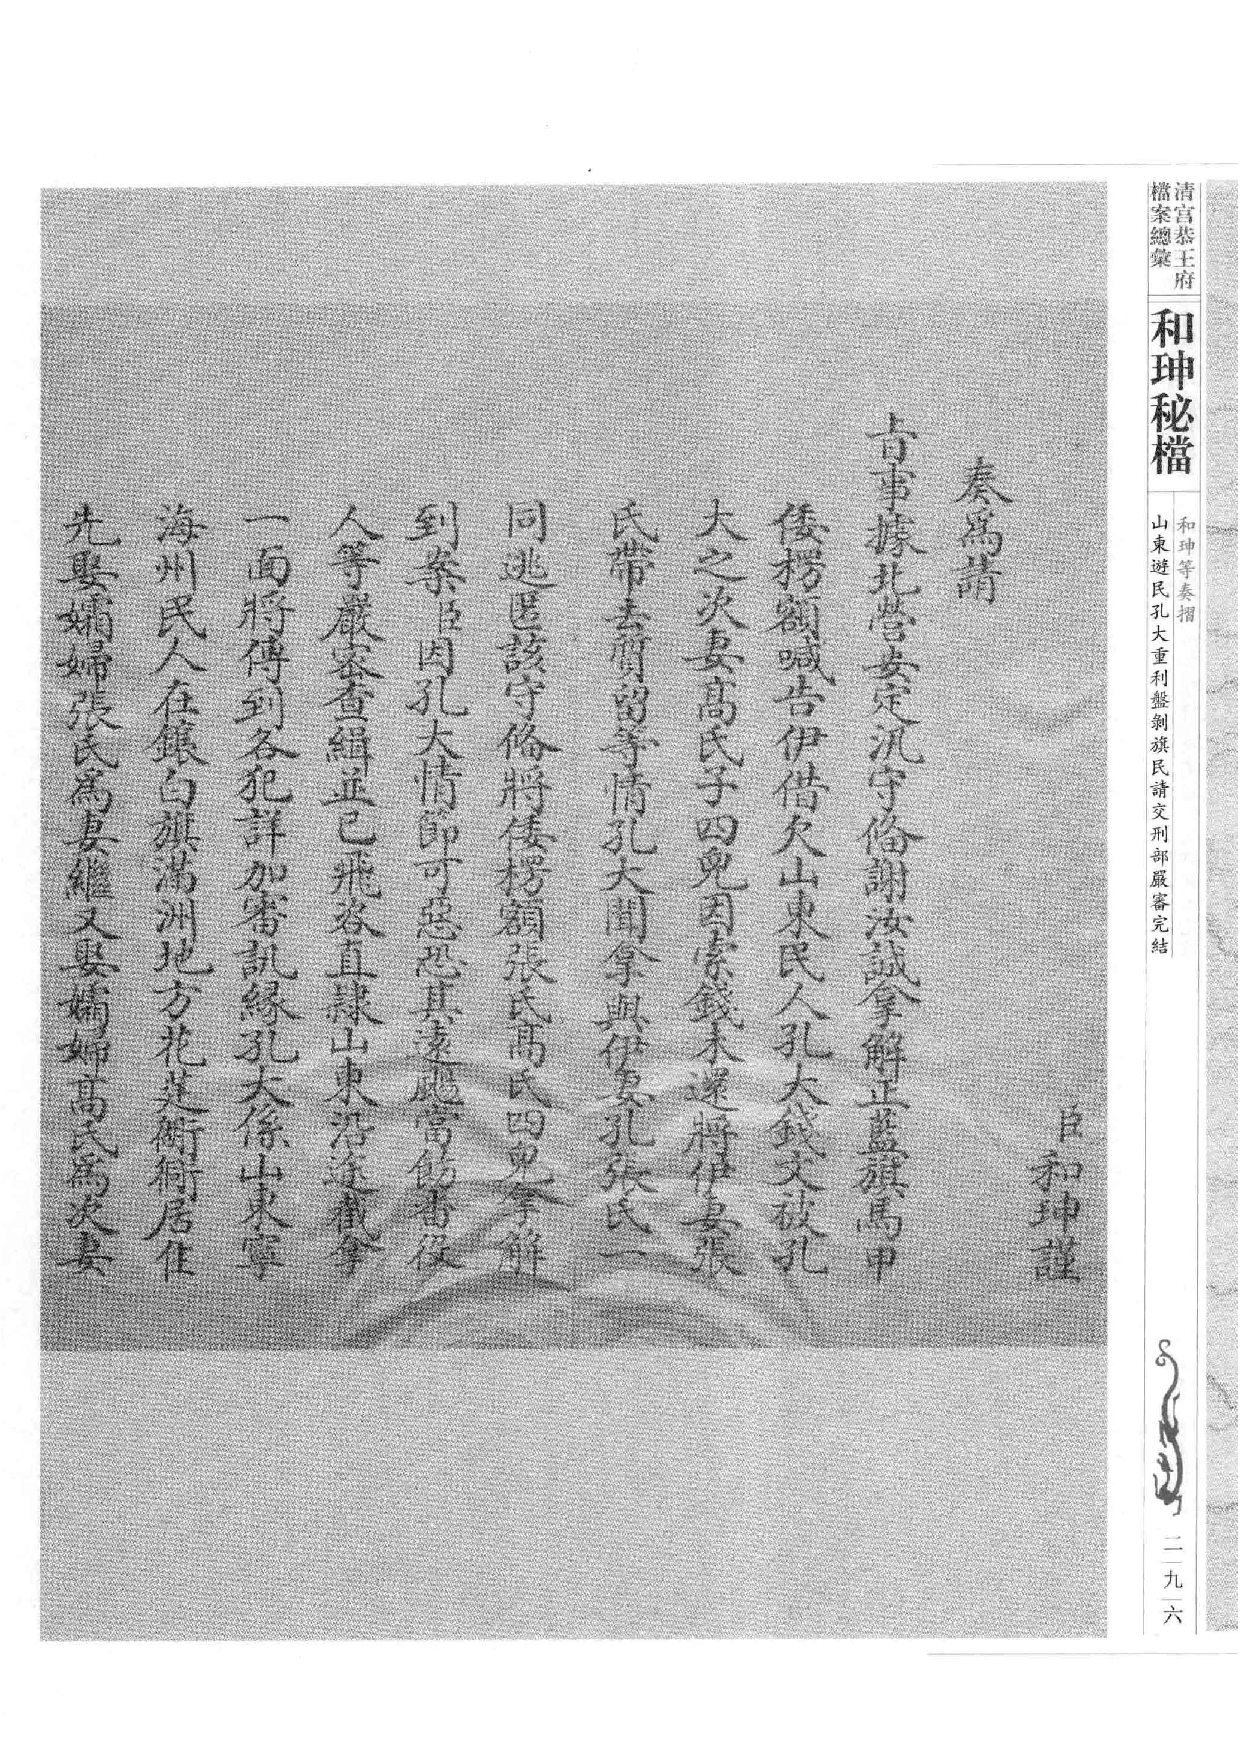 清宮恭王府
檔案總彙
和珅秘檔
和珅等奏摺
山東遊民孔大重利盤剝旗民請交刑部嚴審完結
二九六
臣和珅謹
奏爲請
旨事據北營安定汛守俻謝汝誠拿解正藍旗馬甲
倭楞額喊告伊借欠山東民人孔大錢文被孔
大之次妻髙氏子四兒因索錢未還將伊妻張
氏帶去質留等情孔大聞拿與伊妻孔張氏一
同逃匿該守俻將倭楞額張氏髙氏四兒拿解
到案臣因孔大情節可惡恐其遠颺當飭番役
人等嚴密查緝並已飛咨直隸山東沿途截拿
一面將傳到各犯詳加審訊縁孔大係山東寧
海州民人在鑲白旗滿洲地方花芝衚衕居住
先娶孀婦張氏爲妻繼又娶孀婦髙氏爲次妻